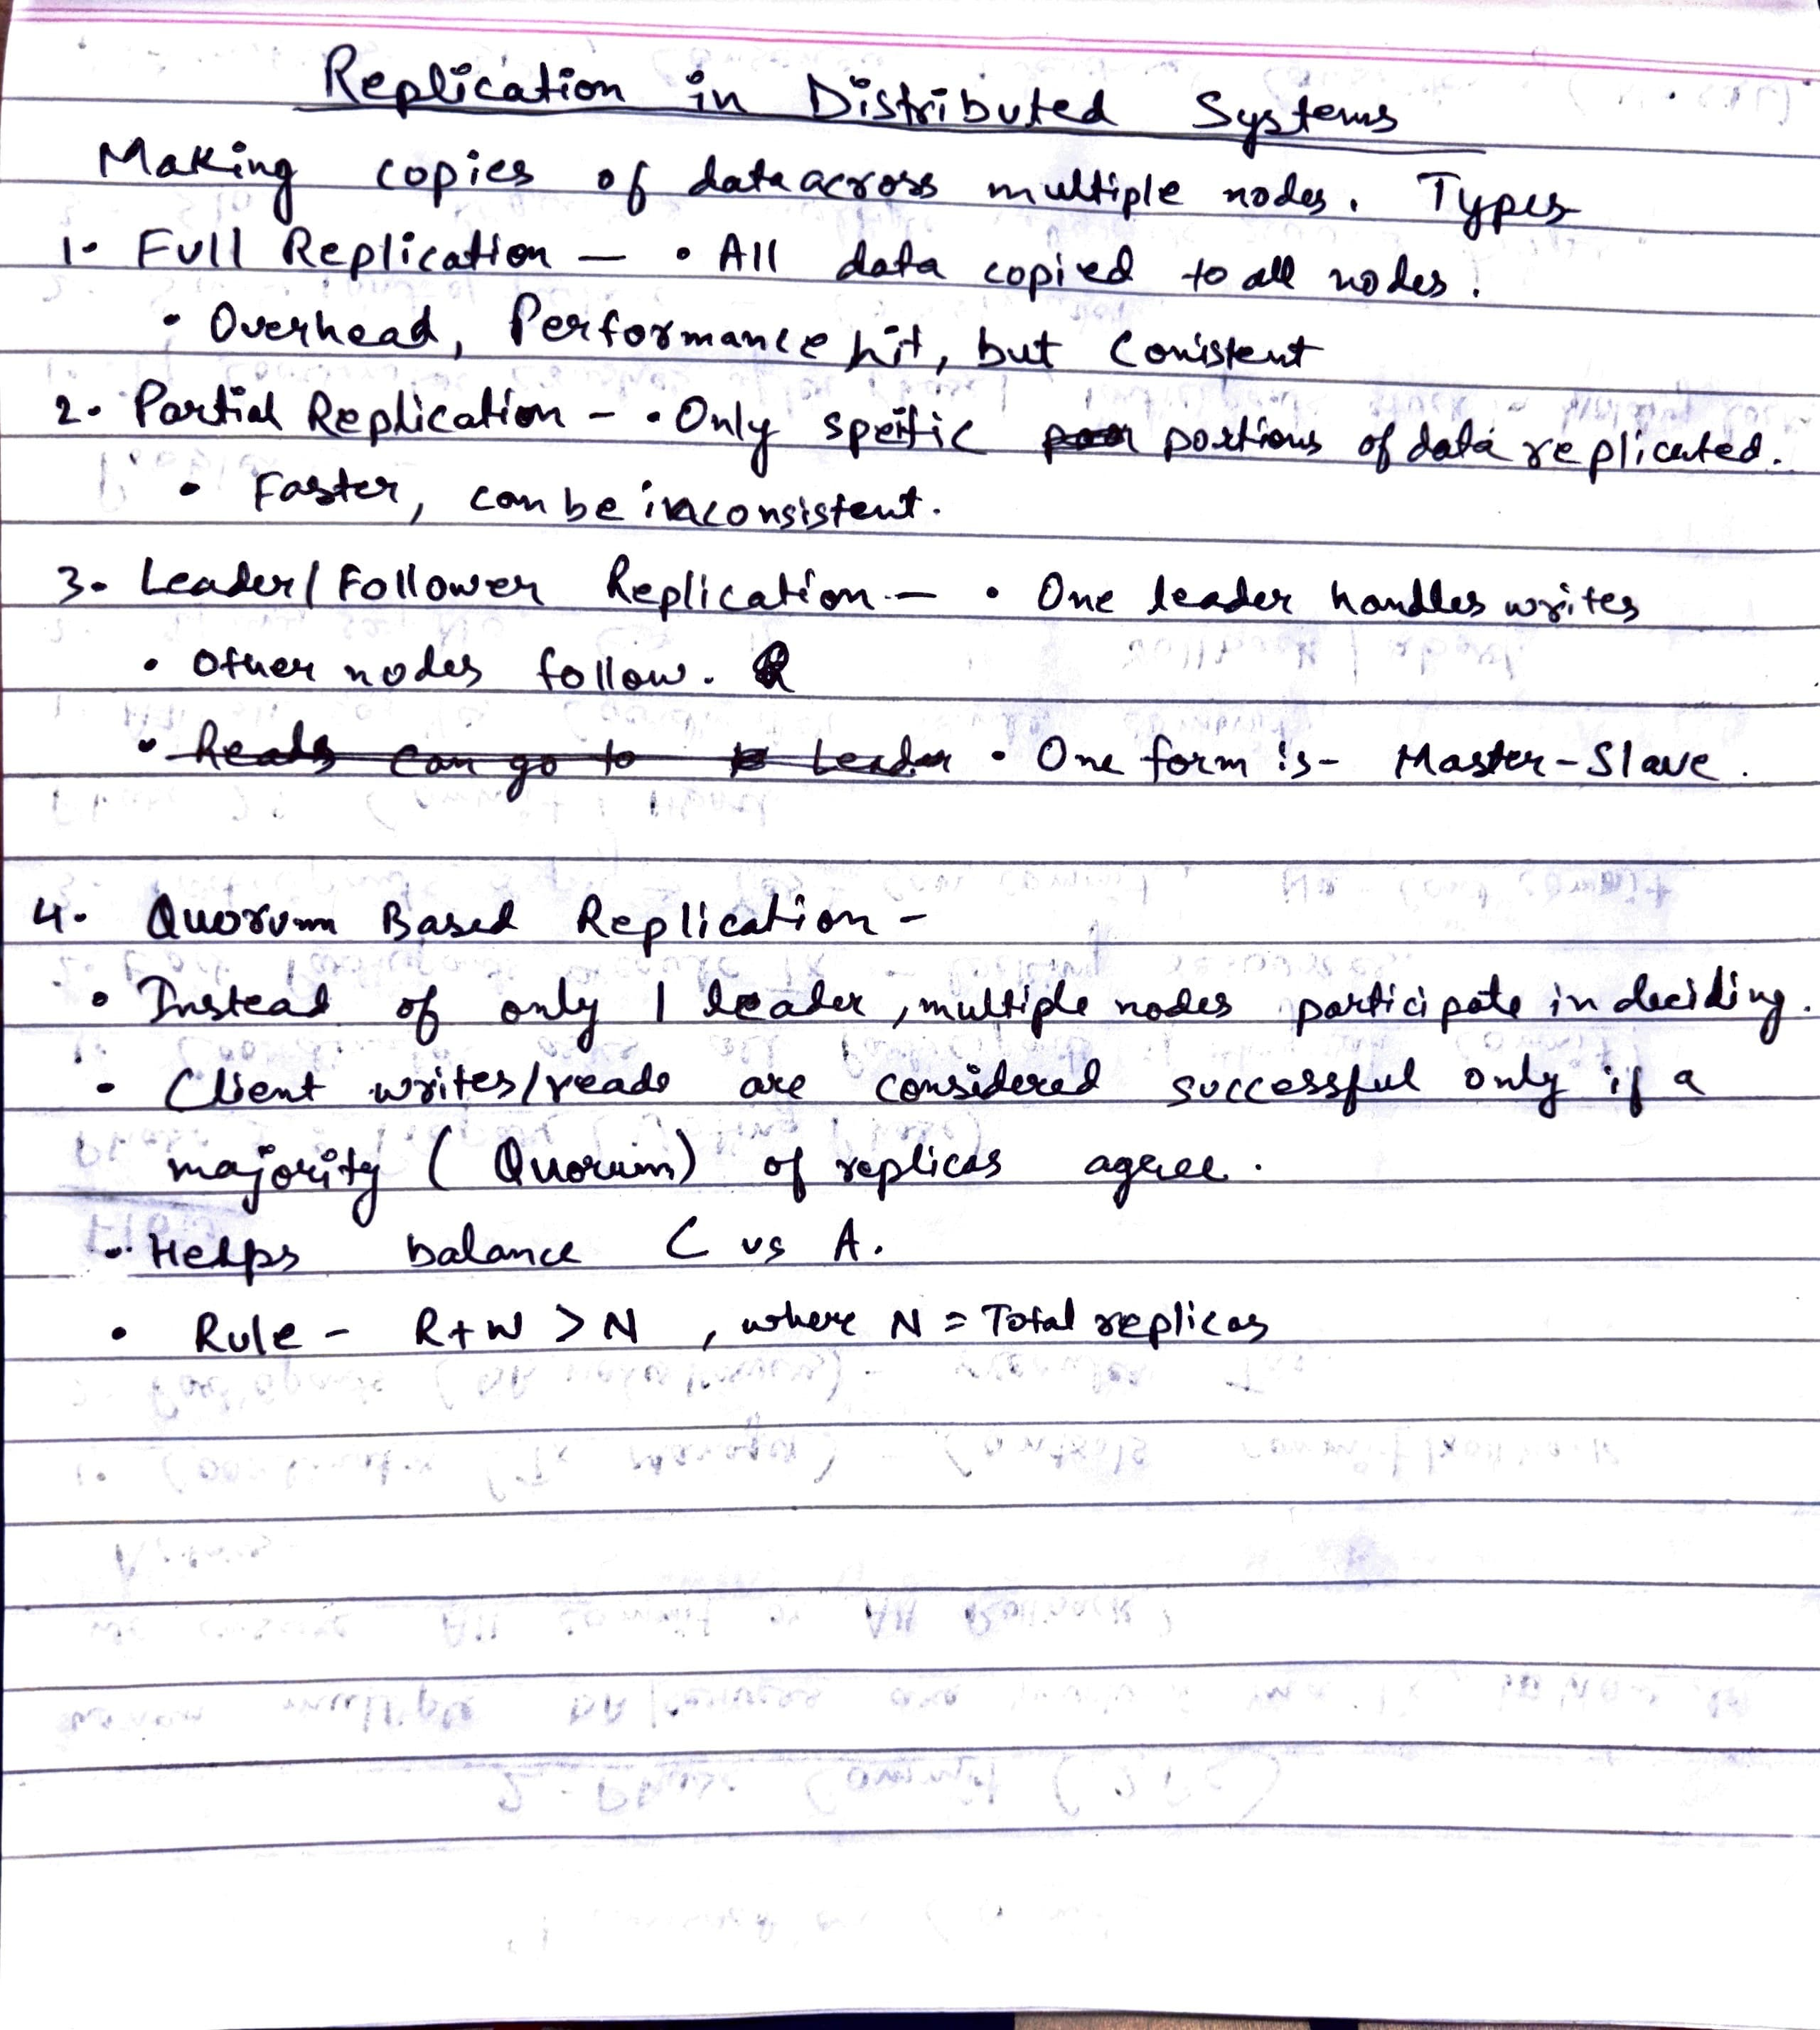 Replication in Distributed Systems
Making copies of data across multiple nodes. Types
1. Full Replication — • All data copied to all nodes.
• Overhead, Performance hit, but Conistent
2. Partial Replication - • Only speific portions of data replicated.
• Faster, can be inconsistent.
3. Leader/Follower Replication — • One leader handles writes
• Other nodes follow.
• Reads can go to Leader • One form is - Master-Slave.
4. Quorum Based Replication -
• Instead of only 1 leader, multiple nodes participate in deciding.
• Client writes/reads are considered successful only if a
majority (Quorum) of replicas agree.
• Helps balance C vs A.
• Rule - R+W > N , where N = Total replicas